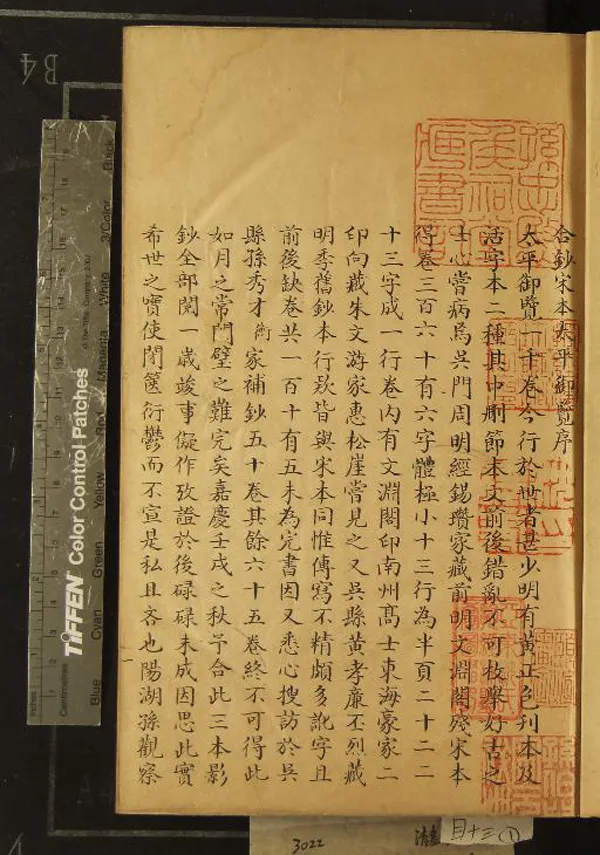 合鈔宋本太平御覽序
太平御覽一千卷今行於世者甚少明有黃正色刊本及
活字本二種其中刪節本文前後錯亂不可枚舉好古之
士心嘗病焉吳門周明經錫瓚家藏前明文淵閣殘宋本
得卷三百六十有六字體極小十三行為半頁二十二二
十三字成一行卷內有文淵閣印南州髙士東海豪家二
印向藏朱文游家惠松崖嘗見之又吳縣黃孝廉丕烈藏
明季舊鈔本行欵皆與宋本同惟傳寫不精頗多訛字且
前後缺卷共一百十有五未為完書因又悉心搜訪於吳
縣孫秀才衡家補鈔五十卷其餘六十五卷終不可得此
如月之常門璧之難完矣嘉慶壬戌之秋予合此三本影
鈔全部閱一歲竣事儗作攷證於後碌碌未成因思此實
希世之寶使閉篋衍鬱而不宣是私且吝也陽湖孫觀察
孫忠愍侯祠堂藏書記
B4
TIFFEN Color Control Patches
Inches
Centimetres
Blue
Cyan
Green
Yellow
Red
Magenta
White
3/Color
Black
3022
目十三(1)